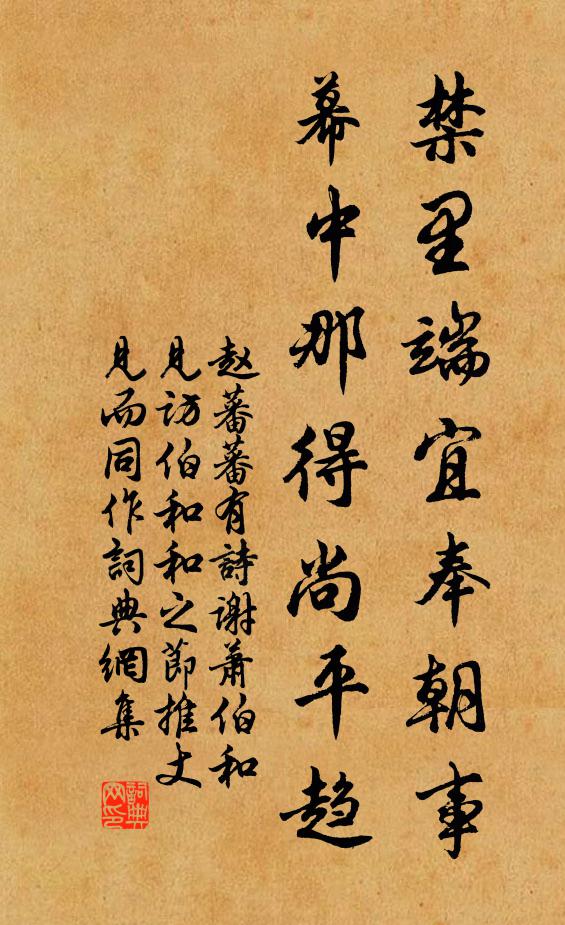 禁里端宜奉朝事
幕中那得尚平趋
赵蕃蕃有詩谢萧伯和
見访伯和和之節推丈
見而同作詞典網集
詞典网印